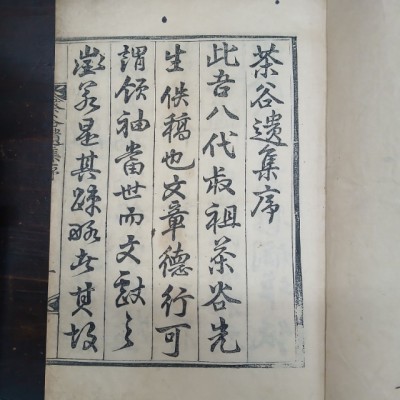 茶谷遺集序
此吾八代叔祖茶谷先
生佚稿也文章德行可
謂領袖當世而文獻之
崩若是其踈略者其故
茶谷遺集序